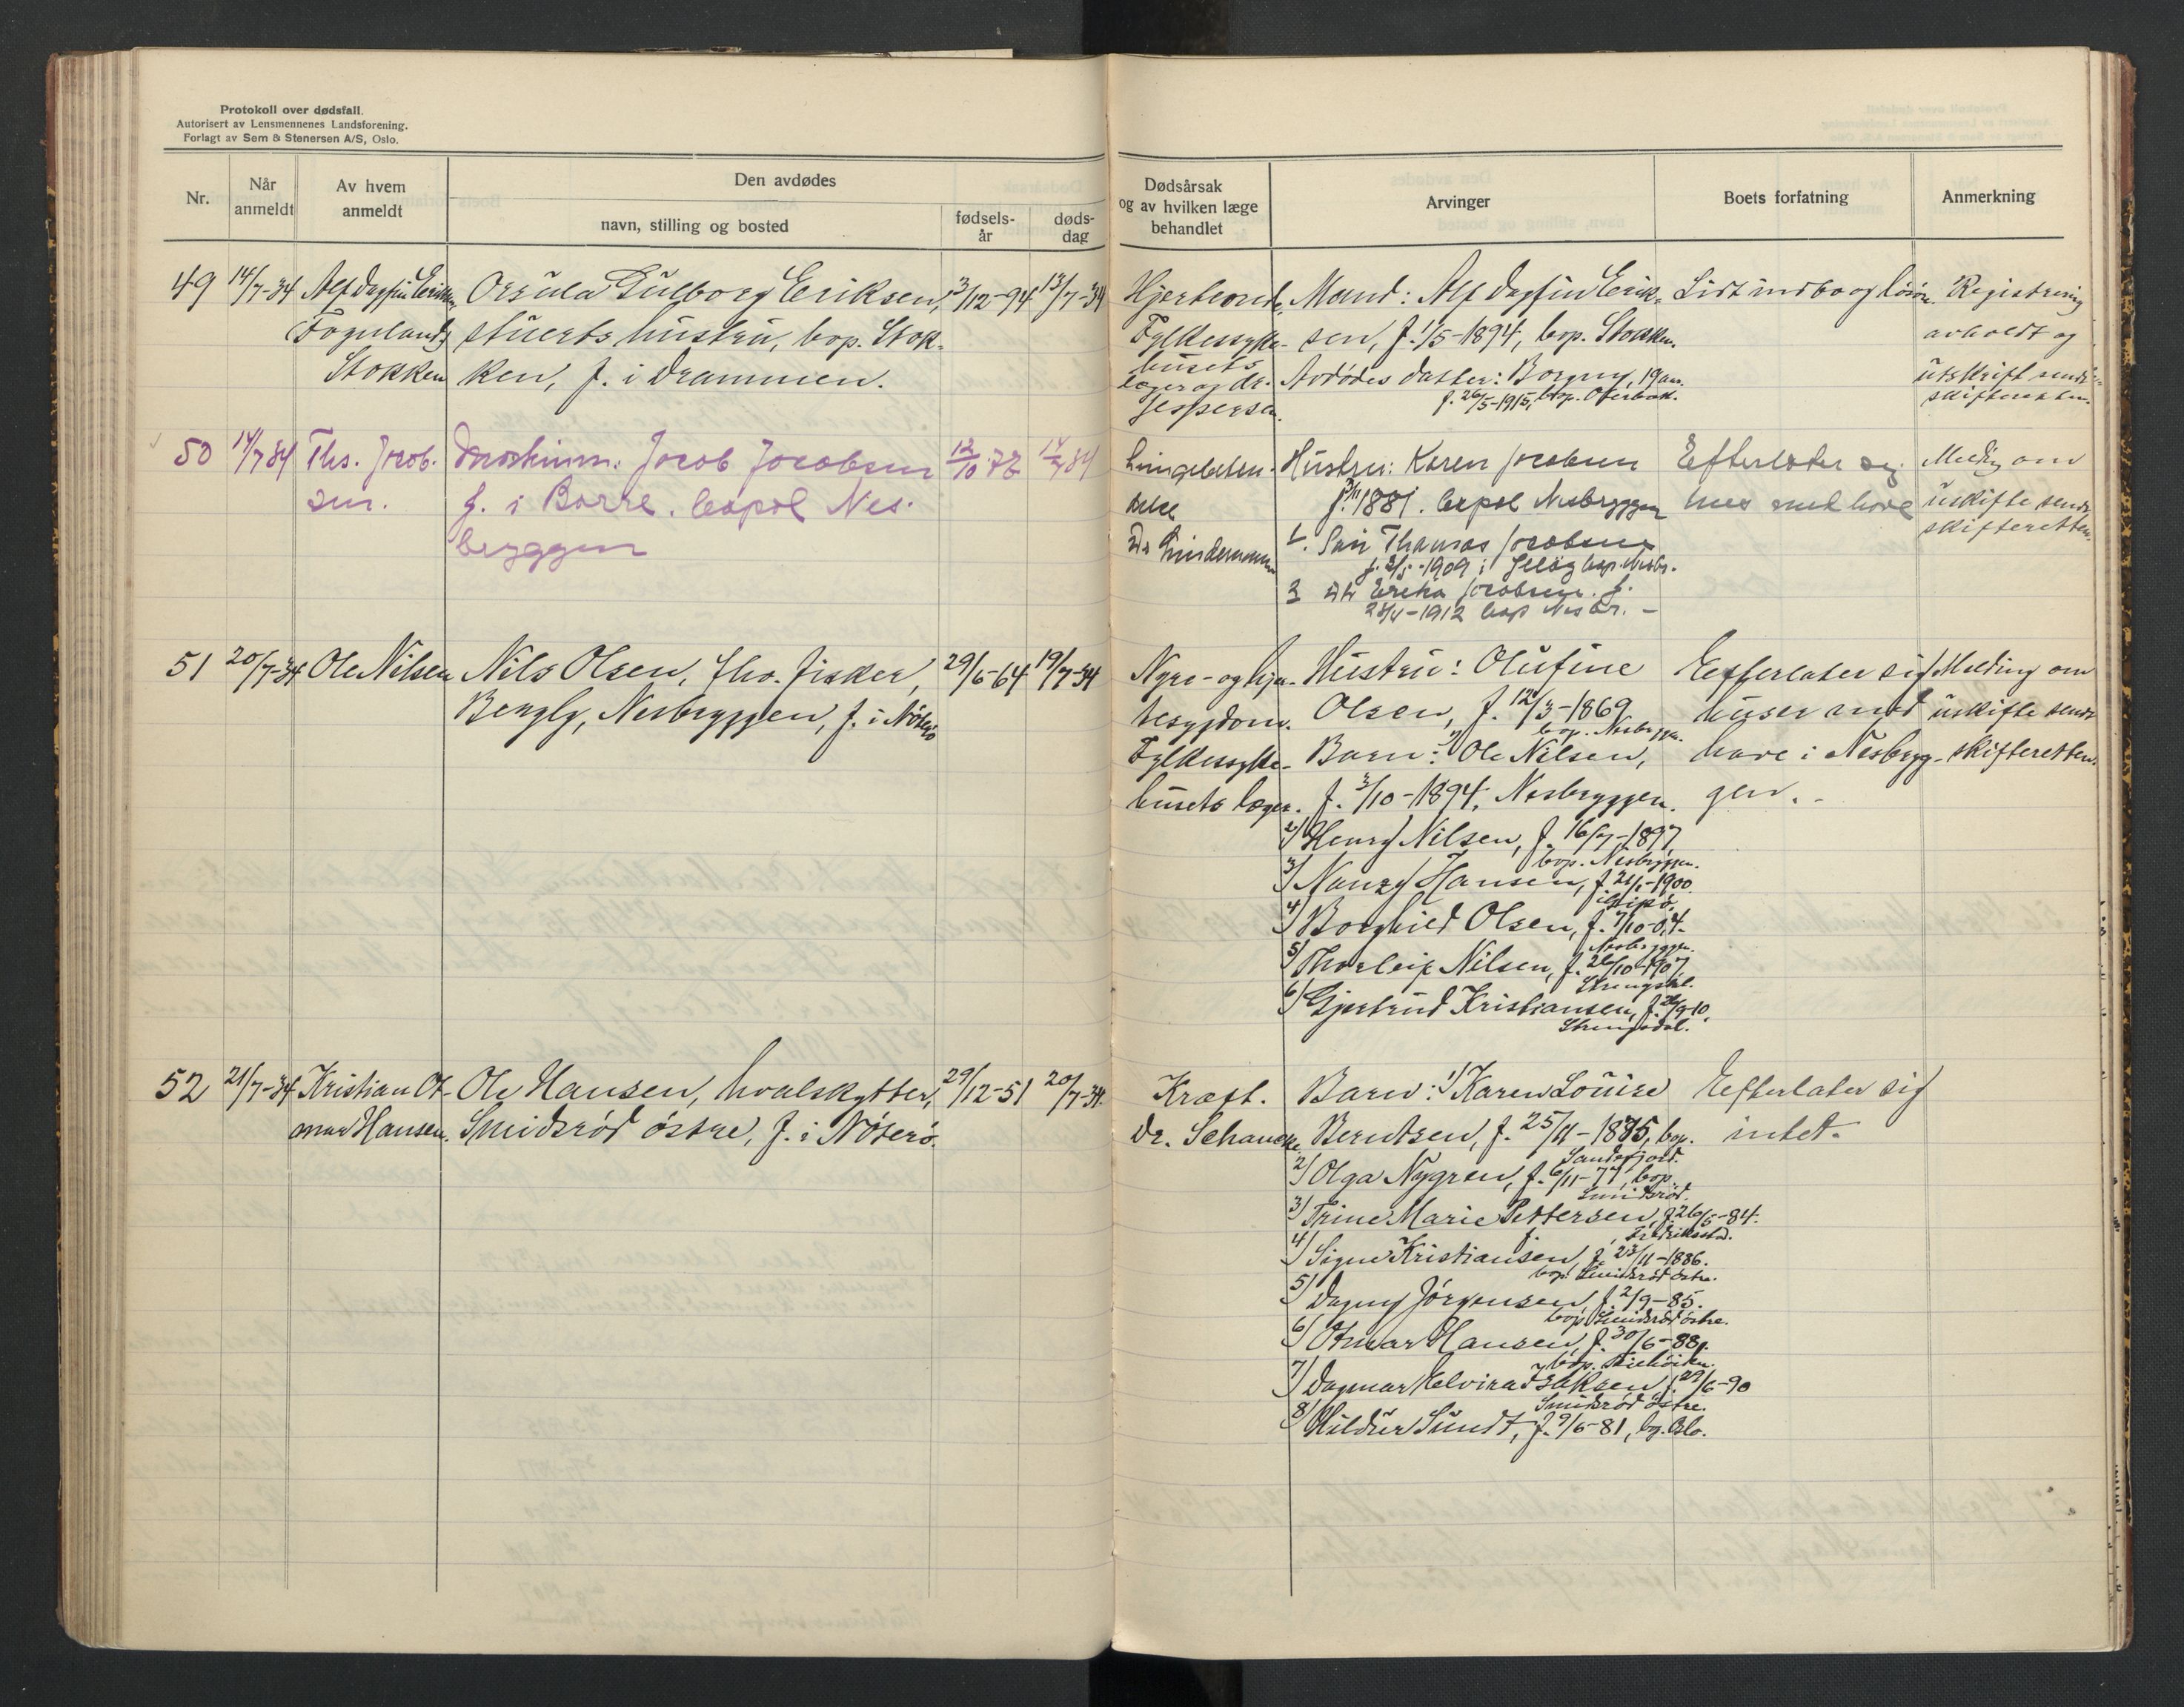 Protokoll over dødsfall.
Autorisert av Lensmennenes Landsforening.
Forlagt av Sem & Stenersen A/S, Oslo.
Nr.
Når
anmeldt
Av hvem
anmeldt
Den avdødes
navn, stilling og bosted
fødsels-
år
døds-
dag
Dødsårsak
og av hvilken læge
behandlet
Arvinger
Boets forfatning
Anmerkning
49 14/7-34 Alf Dagfin Eriksen, Orsula Gulborg Eriksen, 3/12-94 13/7-34 Hjerteonde, Mand: Alf Dagfin Erik- Lidt indbo og løsøre. Registrering
stuerts hustru, bop. Stok- Fylkessyke- sen, f. 1/5-1894, bop. Stokken. avholdt og
Stokken ken, f. i Drammen. husets
læger og dr. Avdødes datter: Borgny, 19 år. utskrift sendt
Jespersen. f. 26/5-1915, bop. skifteretten.
50 14/7 34 Ths. Jacob- Jacob Jacobsen 12/10-72 14/7 34 Hustru: Karen Jacobsen Efterlater sig Melding om
sen. f. i Borre. bopel Nes- 1881. bopel Nesbryggen hus med have uskifte sendt
bryggen Dr Lindemann 1. Søn Thomas Jacobsen skifteretten.
1909 i bop. Nesbr.
2 Jacobsen f.
1912 bop Nesbr. -
51 20/7-34 Ole Nilsen Nils Olsen, fhv. fisker, 29/6-64 19/7-34 Nyre- og hjer- Hustru: Olufine Efterlater sig Melding om
Nesbryggen, f. i Nøterø tesygdom. Olsen, f. 12/3-1869 huser med uskifte sendt
bop. Nesbryggen.
Fylkessyke- Barn: 1/ Ole Nilsen, have i Nesbryg- skifteretten.
husets læger. f. 3/10-1894, Nesbryggen. gen. -
2/ Henry Nilsen, f. 16/7-1897,
bop. Nesbryggen.
3/ Nanzy Hansen, f. 21/1-1900.
4/ Borghild Olsen, f. 7/10-04.
Nesbryggen.
5/ Thorleif Nilsen, f. 26/10-1907,
6/ Gjertrud Kristiansen, f. 26/9-10,
Strengsdal.
52 21/7-34 Kristian Ot- Ole Hansen, hvalskytter, 29/12-51 20/7-34. Kræft. Barn: 1/ Karen Louise Efterlater sig
mar Hansen. Smidsrød østre, f. i Nøterø. Dr. Schancke Berntsen, f. 25/11-1875, bop. intet.
Sandefjord.
2/ Olga Nygren, f. 6/11-77, bop.
Smidsrød.
3/ Trine Marie Pettersen, f. 26/5-84.
Fredrikstad.
4/ Signe Kristiansen, f. 23/11-1886.
bop. Smidsrød østre.
5/ Dagny Jörgensen, f. 2/9-85.
bop. Smidsrød østre.
6/ Otmar Hansen, f. 30/6-88.
7/ Dagmar Elvira Isaksen f. 29/6-90
Smidsrød østre.
8/ Hildur Sundt, f. 9/6-81, bop. Oslo.